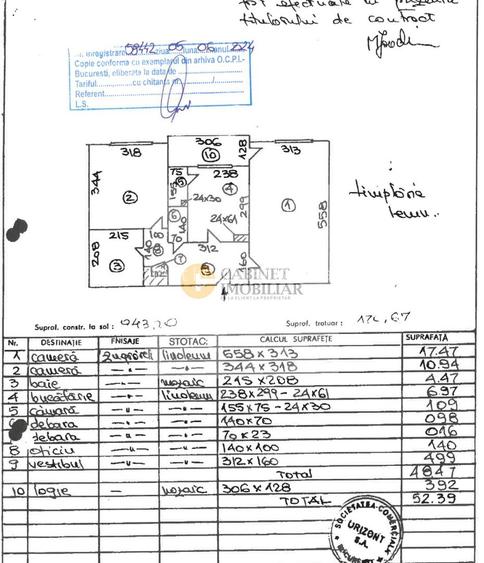 fost efectuate în prezența
titularului de contract
Nr. înregistrare 58442 ziua 05 luna 06 anul 2024
Copie conformă cu exemplarul din arhiva O.C.P.I.-
Bucuresti, eliberata la data de
Tariful cu chitanta nr. /
Referent
L.S.
318
306
10
128
313
344
2
75
5
155
238
4
24x30
299
24x61
1
558
tîmplărie
lemn.
6
140
215
100
8
140
70
312
208
3
7
9
160
CABINET
IMOBILIAR
Suprof. constr. la sol: 943,20
Suprof. trotuar: 174,67
Nr. DESTINAȚIE FINISAJE STOTAC: CALCUL SUPRAFEȚE SUPRAFAȚĂ
1 cameră zugrăveli linoleum 558 x 313 17.47
2 cameră -"- -"- 344 x 318 10.94
3 baie -"- mozaic 215 x 208 4.47
4 bucătărie -"- linoleum 238 x 299 - 24 x 61 697
5 cămară -"- -"- 155 x 75 - 24 x 30 109
debara -"- -"- 140 x 70 098
debara -"- -"- 70 x 23 016
8 oficiu -"- -"- 140 x 100 140
9 vestibul -"- -"- 312 x 160 499
Total 4847
10 logie - mozaic 306 x 128 392
TOTAL 52.39
SOCIETATEA COMERCIALĂ
URIZONT
S.A.
BUCUREȘTI